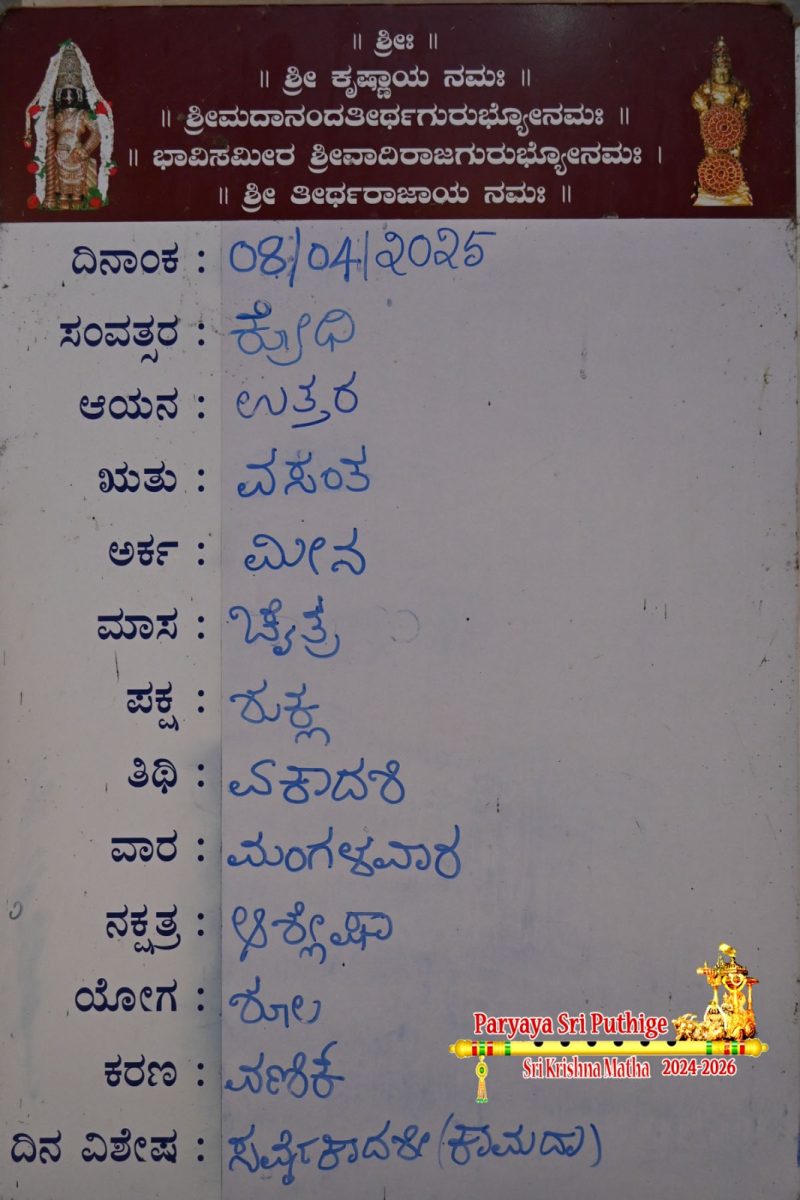 ॥ ಶ್ರೀಃ ॥
॥ ಶ್ರೀ ಕೃಷ್ಣಾಯ ನಮಃ ॥
॥ ಶ್ರೀಮದಾನಂದತೀರ್ಥಗುರುಭ್ಯೋನಮಃ ॥
॥ ಭಾವಿಸಮೀರ ಶ್ರೀವಾದಿರಾಜಗುರುಭ್ಯೋನಮಃ ।
॥ ಶ್ರೀ ತೀರ್ಥರಾಜಾಯ ನಮಃ ॥
ದಿನಾಂಕ : 08/04/2025
ಸಂವತ್ಸರ : ಕ್ರೋಧಿ
ಆಯನ : ಉತ್ತರ
ಋತು : ವಸಂತ
ಅರ್ಕ : ಮೀನ
ಮಾಸ : ಚೈತ್ರ
ಪಕ್ಷ : ಶುಕ್ಲ
ತಿಥಿ : ಏಕಾದಶಿ
ವಾರ : ಮಂಗಳವಾರ
ನಕ್ಷತ್ರ : ಆಶ್ಲೇಷಾ
ಯೋಗ : ಶೂಲ
ಕರಣ : ವಣಿಕ್
ದಿನ ವಿಶೇಷ : ಸರ್ವೈಕಾದಶೀ (ಕಾಮದಾ)
Paryaya Sri Puthige
Sri Krishna Matha 2024-2026